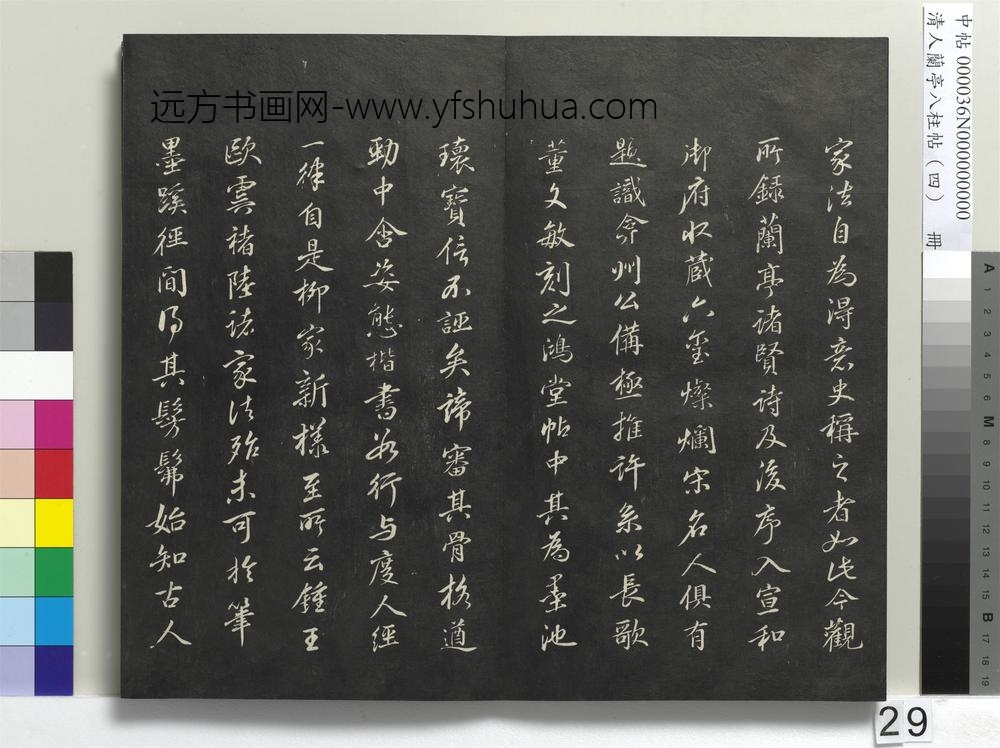 家法自為得意史稱之者如此今觀
所録蘭亭諸賢詩及後序入宣和
御府收藏六璽燦爛宋名人俱有
題識弇州公備極推許系以長歌
董文敏刻之鴻堂帖中其為墨池
瓌寶信不誣矣諦審其骨格遒
勁中含姿態楷書如行与度人經
一律自是柳家新樣至所云鍾王
歐虞褚陸諸家法殆未可於筆
墨蹊徑間得其髣髴始知古人
远方书画网-www.yfshuhua.com
中帖000036N000000000
清人蘭亭八柱帖(四) 冊
29
A 1 2 3 4 5 6 M 8 9 10 11 12 13 14 15 B 17 18 19